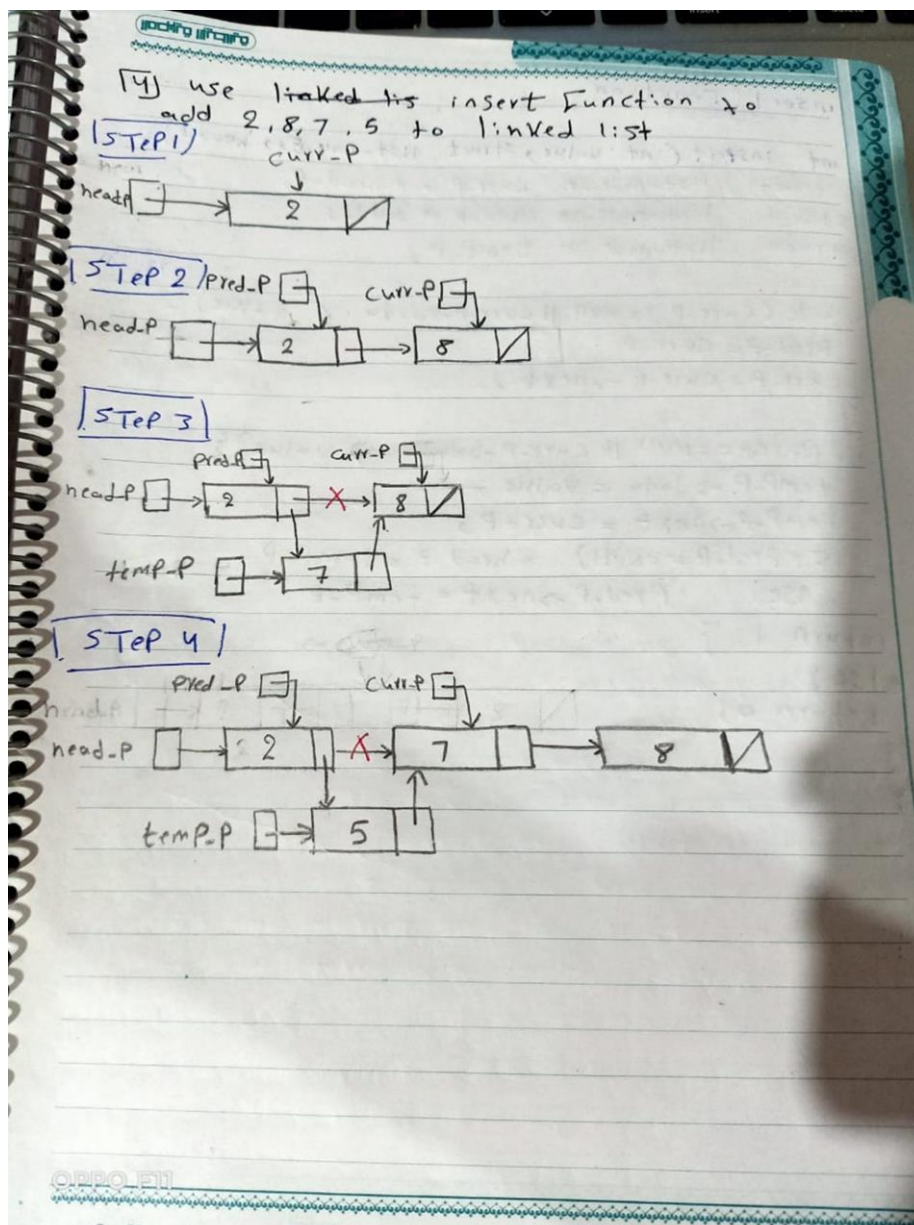 [4] use linked lis insert Function to
add 2, 8, 7, 5 to linked list
STeP 1
curr_P
headP
2
STeP 2
Pred_P
curr_P
head_P
2
8
STeP 3
pred_P
curr_P
head_P
2
X
8
temp_P
7
STeP 4
Pred_P
curr_P
head_P
2
X
7
8
temp_P
5
OPPO F11